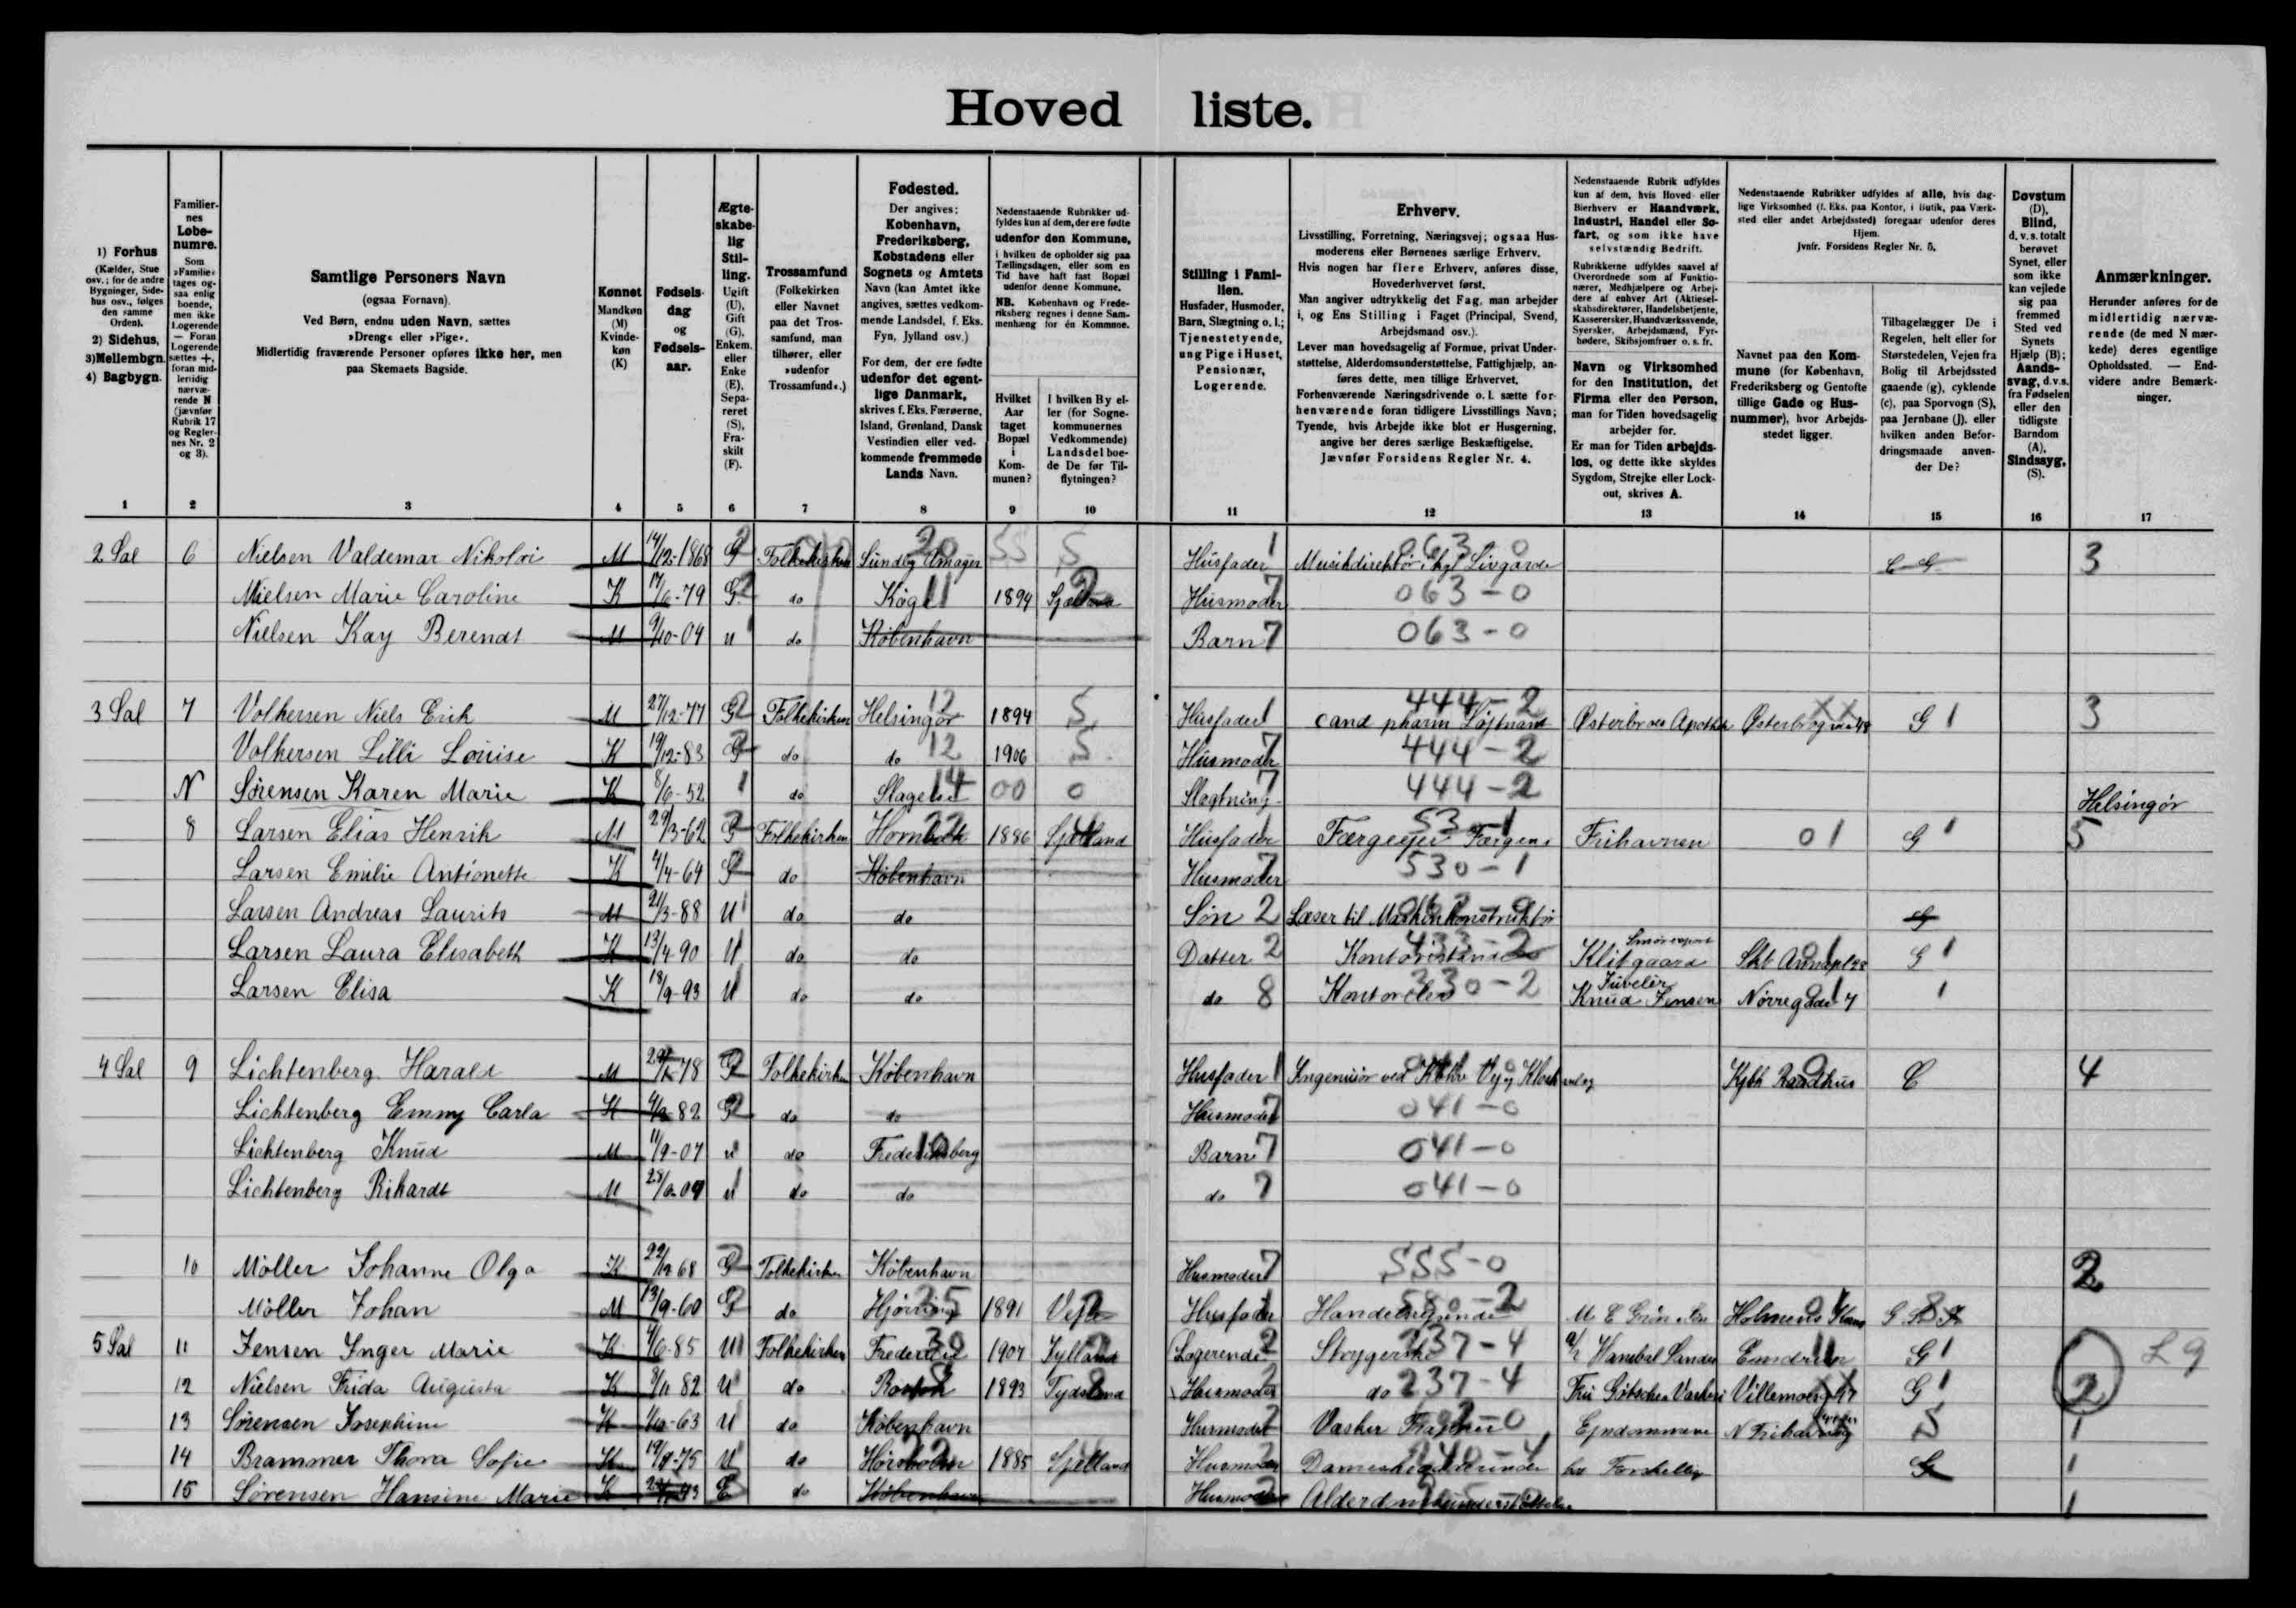 Hoved liste.
1) Forhus (Kælder, Stue osv.; for de andre Bygninger, Sidehus osv., følges den samme Orden). 2) Sidehus, 3) Mellembgn. 4) Bagbygn.
Familiernes Løbenumre. Som »Familie« tages ogsaa enlig boende, men ikke Logerende — Foran Logerende sættes +, foran midlertidig nærværende N (jævnfør Rubrik 17 og Reglernes Nr. 2 og 3).
Samtlige Personers Navn (ogsaa Fornavn). Ved Børn, endnu uden Navn, sættes »Dreng« eller »Pige«. Midlertidig fraværende Personer opføres ikke her, men paa Skemaets Bagside.
Kønnet Mandkøn (M) Kvindekøn (K)
Fødselsdag og Fødselsaar.
Ægteskabelig Stilling. Ugift (U), Gift (G), Enkem. eller Enke (E), Separeret (S), Fraskilt (F).
Trossamfund (Folkekirken eller Navnet paa det Trossamfund, man tilhører, eller »udenfor Trossamfund«.)
Fødested. Der angives: København, Frederiksberg, Købstadens eller Sognets og Amtets Navn (kan Amtet ikke angives, sættes vedkommende Landsdel, f. Eks. Fyn, Jylland osv.) For dem, der ere fødte udenfor det egentlige Danmark, skrives f. Eks. Færøerne, Island, Grønland, Dansk Vestindien eller vedkommende fremmede Lands Navn.
Nedenstaaende Rubrikker udfyldes kun af dem, der ere fødte udenfor den Kommune, i hvilken de opholder sig paa Tællingsdagen, eller som en Tid have haft fast Bopæl udenfor denne Kommune. NB. København og Frederiksberg regnes i denne Sammenhæng for én Kommune.
Hvilket Aar taget Bopæl i Kommunen?
I hvilken By eller (for Sognekommunernes Vedkommende) Landsdel boede De før Tilflytningen?
Stilling i Familien. Husfader, Husmoder, Barn, Slægtning o. l.; Tjenestetyende, ung Pige i Huset, Pensionær, Logerende.
Erhverv. Livsstilling, Forretning, Næringsvej; ogsaa Husmoderens eller Børnenes særlige Erhverv. Hvis nogen har flere Erhverv, anføres disse, Hovederhvervet først. Man angiver udtrykkelig det Fag, man arbejder i, og Ens Stilling i Faget (Principal, Svend, Arbejdsmand osv.). Lever man hovedsagelig af Formue, privat Understøttelse, Alderdomsunderstøttelse, Fattighjælp, anføres dette, men tillige Erhvervet. Forhenværende Næringsdrivende o. l. sætte forhenværende foran tidligere Livsstillings Navn; Tyende, hvis Arbejde ikke blot er Husgerning, angive her deres særlige Beskæftigelse. Jævnfør Forsidens Regler Nr. 4.
Nedenstaaende Rubrik udfyldes kun af dem, hvis Hoved- eller Bierhverv er Haandværk, Industri, Handel eller Søfart, og som ikke have selvstændig Bedrift. Rubrikkerne udfyldes saavel af Overordnede som af Funktionærer, Medhjælpere og Arbejdere af enhver Art (Aktieselskabsdirektører, Handelsbetjente, Kasserersker, Haandværkssvende, Syersker, Arbejdsmænd, Fyrbødere, Skibsjomfruer o. s. fr. Navn og Virksomhed for den Institution, det Firma eller den Person, man for Tiden hovedsagelig arbejder for. Er man for Tiden arbejdsløs, og dette ikke skyldes Sygdom, Strejke eller Lockout, skrives A.
Nedenstaaende Rubrikker udfyldes af alle, hvis daglige Virksomhed (f. Eks. paa Kontor, i Butik, paa Værksted eller andet Arbejdssted) foregaar udenfor deres Hjem. Jvnfr. Forsidens Regler Nr. 5.
Navnet paa den Kommune (for København, Frederiksberg og Gentofte tillige Gade og Husnummer), hvor Arbejdsstedet ligger.
Tilbagelægger De i Regelen, helt eller for Størstedelen, Vejen fra Bolig til Arbejdssted gaaende (g), cyklende (c), paa Sporvogn (S), paa Jernbane (J), eller hvilken anden Befordringsmaade anvender De?
Døvstum (D), Blind, d. v. s. totalt berøvet Synet, eller som ikke kan vejlede sig paa fremmed Sted ved Synets Hjælp (B); Aandssvag, d. v. s. fra Fødselen eller den tidligste Barndom (A), Sindssyg, (S).
Anmærkninger. Herunder anføres for de midlertidig nærværende (de med N mærkede) deres egentlige Opholdssted. — Endvidere andre Bemærkninger.
1 2 3 4 5 6 7 8 9 10 11 12 13 14 15 16 17
2 Sal 6 Nielsen Valdemar Nikolai M 14/12-1868 G Folkekirken Sundby Amager 20 SS S Husfader 1 Musikdirektør kgl Livgarde 063-0 3
Nielsen Marie Caroline K 17/6-79 G do Køge 11 1894 Husmoder 7 063-0
Nielsen Kay Berendt M 9/10-04 u do København Barn 7 063-0
3 Sal 7 Volkersen Niels Erik M 27/12-77 G Folkekirken Helsingør 12 1894 S Husfader 1 cand pharm Løjtnant 444-2 Østerbros Apothek G 1 3
Volkersen Lilli Louise K 19/12-83 G do do 12 1906 S Husmoder 7 444-2
N Sørensen Karen Marie K 8/6-52 do Slagelse 14 00 0 Slægtning 7 444-2 Helsingør
8 Larsen Elias Henrik M 29/3-62 G Folkekirken Hornbæk 22 1886 Sjælland Husfader 1 530-1 Frihavnen 01 G 1 5
Larsen Emilie Antionette K 4/4-64 G do København Husmoder 7 530-1
Larsen Andreas Laurits M 21/3-88 U do do Søn 2 Læser til Maskinkonstruktør
Larsen Laura Elisabeth K 13/4-90 U do do Datter 2 Kontoristinde 433-2 Klitgaard Smørexport G 1
Larsen Elisa K 18/9-93 U do do do 8 Kontorelev 330-2 Juveler Knud Jensen Nørregade 7 1
4 Sal 9 Lichtenberg Harald M G Folkekirken København Husfader 1 Ingeniør ved Kjbh Raadhus C 4
Lichtenberg Emmy Carla K G do do Husmoder 7 041-0
Lichtenberg Knud M 11/9-07 u do Frederiksberg 10 Barn 7 041-0
Lichtenberg Rihardt M u do do do 7 041-0
10 Møller Johanne Olga K G Folkekirken København Husmoder 7 555-0 2
Møller Johan M 13/9-60 G do Hjørring 25 1891 Vejle Husfader 1 580-2 Holmens Kanal
5 Sal 11 Jensen Inger Marie K U Folkekirken 30 1907 Jylland Logerende 2 Strygerske 237-4 G 1 L 9
12 Nielsen Frida Augusta K U do 8 1893 Tydskland Husmoder 2 do 237-4 G 1 2
13 Sørensen Josephine K U do København Husmoder 2 Vasker S 1
14 Brammer Thora Sofie K U do 22 1885 Sjælland Husmoder 2 1
15 Sørensen Hansine Marie K E do København Husmoder 2 Alderdomsunderstøttelse 1